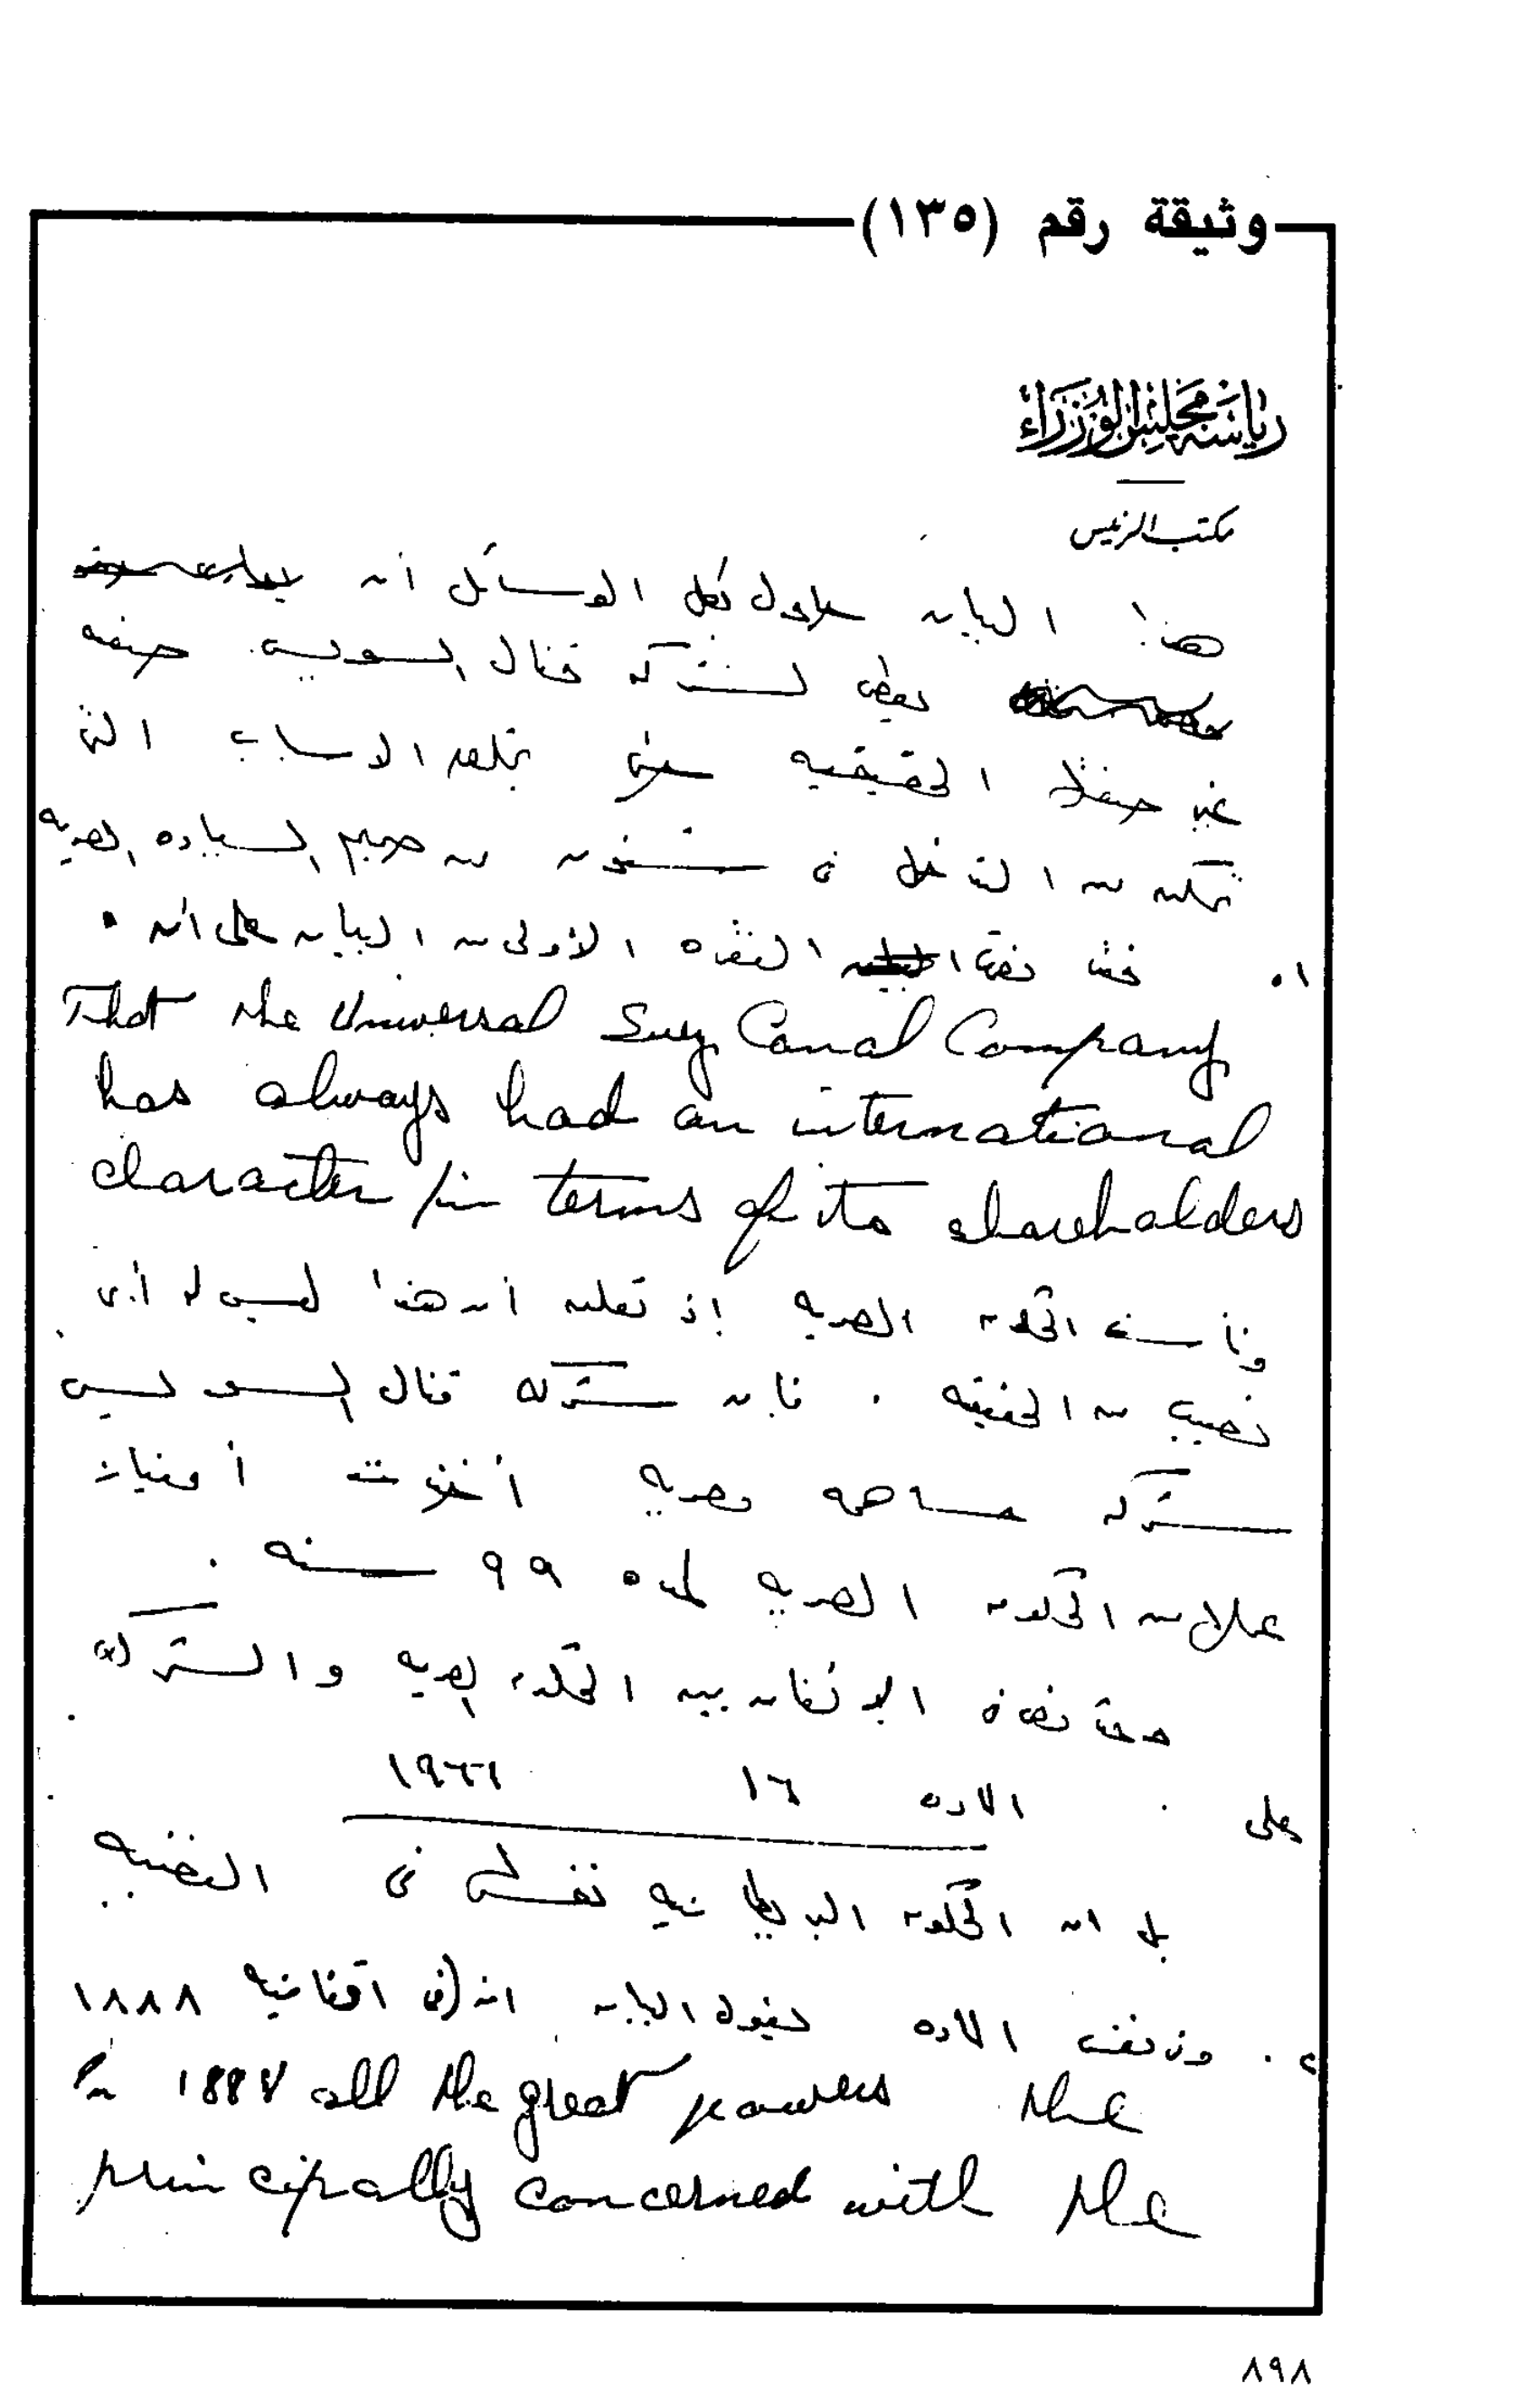 وثيقة رقم (١٣٥)
رياسة مجلس الوزراء
مكتب الرئيس
هذا البيان يحاول بكل الوسائل ان
يعطى لشركه قنال السويس صفه
غير صفتها الحقيقيه حتى يخلق الاسباب التى
تمكنه من التدخل فى شئون من صميم السياده المصريه
٠١ فقد نصت الفقره الأولى من البيان على أن ٠
That the Universal Suez Canal Company
has always had an international
character in terms of its shareholders
وتأسف الحكومه المصريه إذ تعلن أن هذا ليس له أى
نصيب من الحقيقه . فان شركه قنال السويس
شركه مساهمه مصريه أخذت أمتياز
من الحكومه المصريه لمده ٩٩ سنه .
نص الاتفاق بين الحكومه المصريه والشركه
على الماده ١٦ ١٩٦٦
بل ان الحكومه البريطانيه نفسها فى القضيه
٢ . وفى نفس الماده يقول البيان انه فى اتفاقيه ١٨٨٨
In 1888 all the great powers the
principally concerned with the
٨٩٨